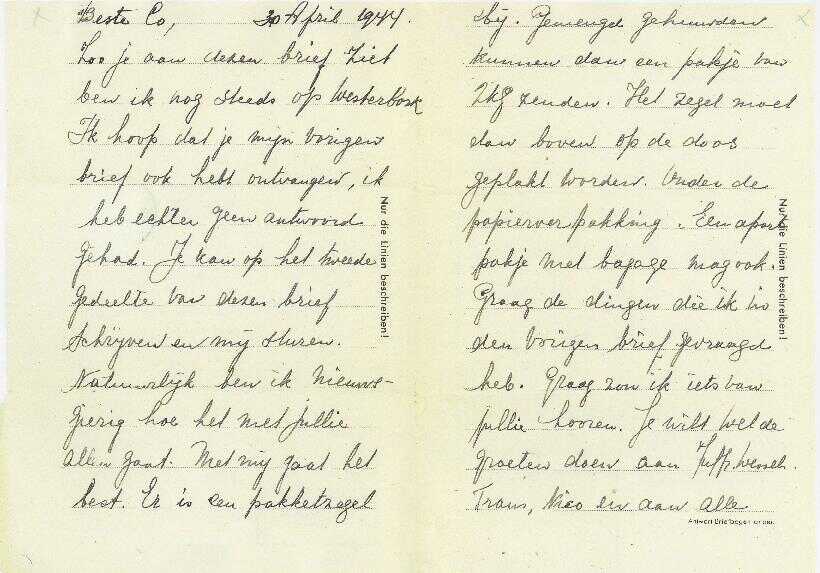 Beste Co, 30 April 1944.
Zoo je aan dezen brief ziet
ben ik nog steeds op Westerbork
Ik hoop dat je mijn vorigen
brief ook hebt ontvangen, ik
heb echter geen antwoord
gehad. Je kan op het tweede
gedeelte van dezen brief
schrijven en mij sturen.
Natuurlijk ben ik nieuws-
gierig hoe het met jullie
allen gaat. Met mij gaat het
best. Er is een pakketzegel
Nur die Linien beschreiben!
bij. Gemengd gehuwden
kunnen dan een pakje van
2kg zenden. Het zegel moet
dan boven op de doos
geplakt worden. Onder de
papierverpakking. Een apart
pakje met bagage mag ook.
Graag de dingen die ik in
den vorigen brief gevraagd
heb. Graag zou ik iets van
jullie hooren. Je wilt wel de
groeten doen aan Juffr. Wessel.
Trans, Nico en aan alle
Nur die Linien beschreiben!
Antwort Briefbogen